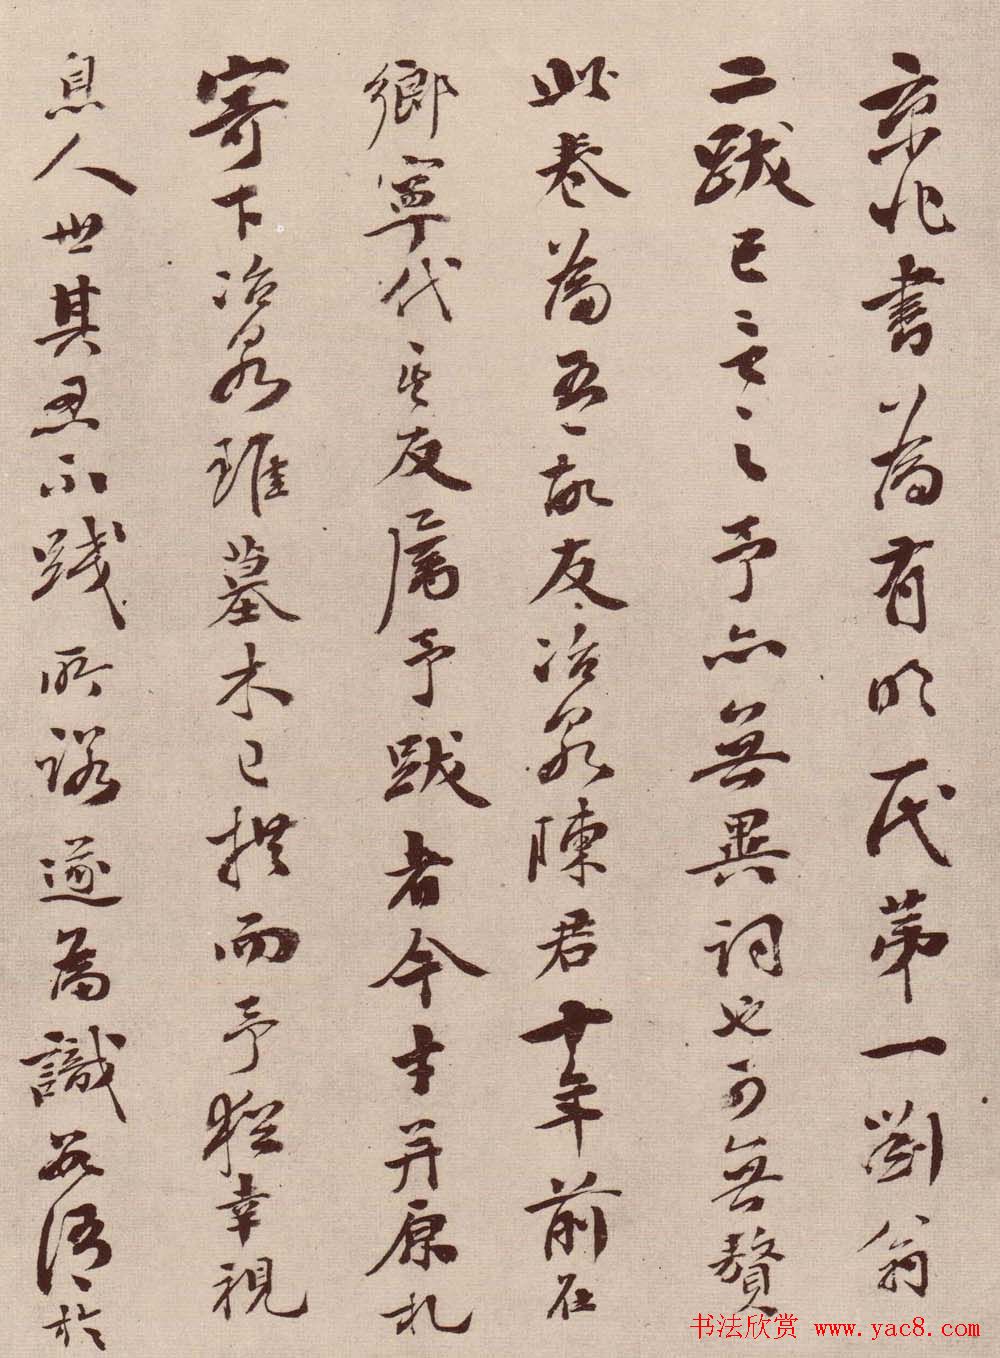 京兆書為有明一代第一劉翁
二跋已言之予亦無異詞也可無贅
此卷為吾故友冶泉陳君廿年前在
鄉寧代其友屬予跋者今幸并原札
寄下冶泉雖墓木已拱而予猶幸視
息人世其忍不踐所諾遂為識數語於
书法欣赏 www.yac8.com